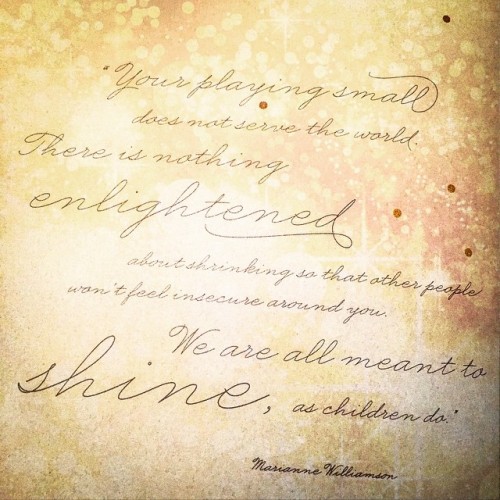 "Your playing small
does not serve the world.
There is nothing
enlightened
about shrinking so that other people
won't feel insecure around you.
We are all meant to
shine, as children do."
Marianne Williamson